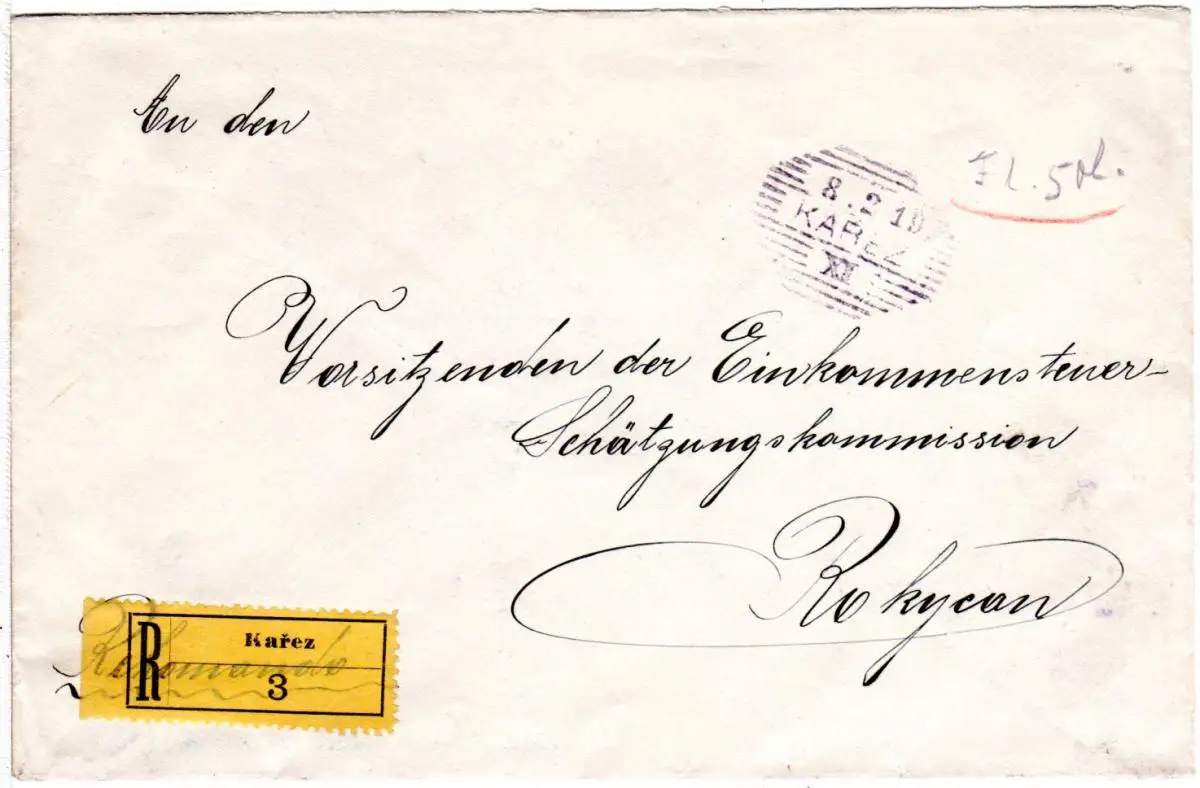 An den
8.2 10
KAŘEZ
XII
Vorsitzenden der Einkommensteuer-
Schätzungskommission
Rokycan
R
Kařez
Rekomando
3